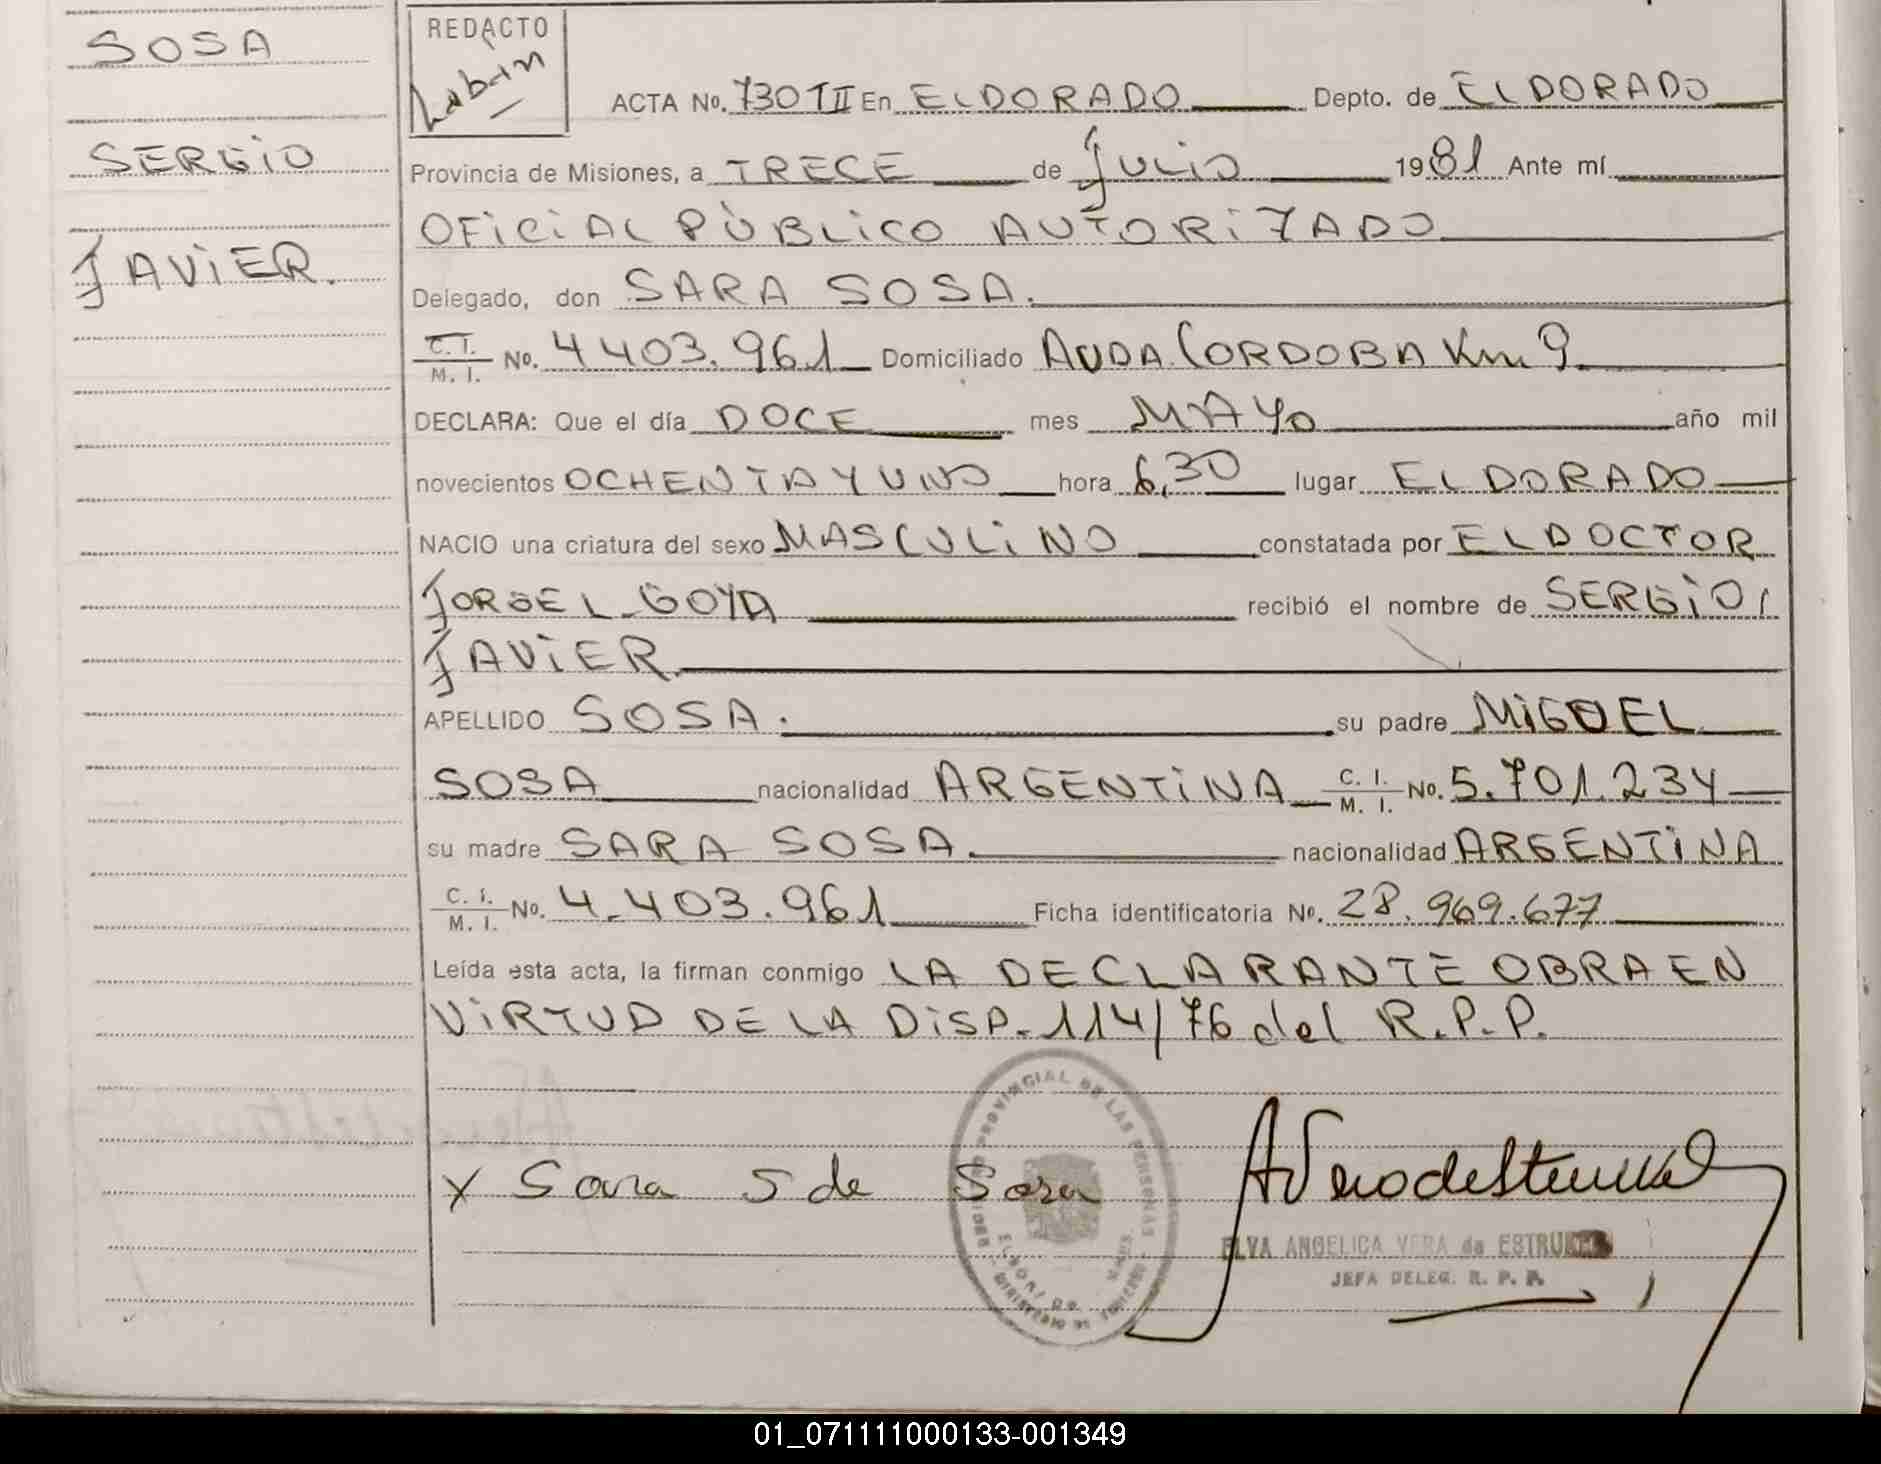 SOSA
SERGIO
JAVIER.
REDACTO
ACTA No. 730 TII En ELDORADO Depto. de ELDORADO
Provincia de Misiones, a TRECE de JULIO 1981 Ante mí
OFICIAL PÚBLICO AUTORIZADO
Delegado, don SARA SOSA.
C. I. / M. I. No. 4403.961 Domiciliado AVDA CORDOBA Km 9
DECLARA: Que el día DOCE mes MAYO año mil
novecientos OCHENTA Y UNO hora 6,30 lugar ELDORADO
NACIO una criatura del sexo MASCULINO constatada por EL DOCTOR
JORGE L. GOYA recibió el nombre de SERGIO,
JAVIER
APELLIDO SOSA. su padre MIGUEL
SOSA nacionalidad ARGENTINA C. I. / M. I. No. 5.701.234
su madre SARA SOSA. nacionalidad ARGENTINA
C. I. / M. I. No. 4.403.961 Ficha identificatoria No. 28.969.677
Leída esta acta, la firman conmigo LA DECLARANTE OBRA EN
VIRTUD DE LA DISP. 114/76 del R.P.P.
X Sara S de Sosa
PROVINCIAL DE LAS PERSONAS
ELVA ANGELICA VERA de ESTRU
JEFA DELEG. R. P. P.
01_071111000133-001349